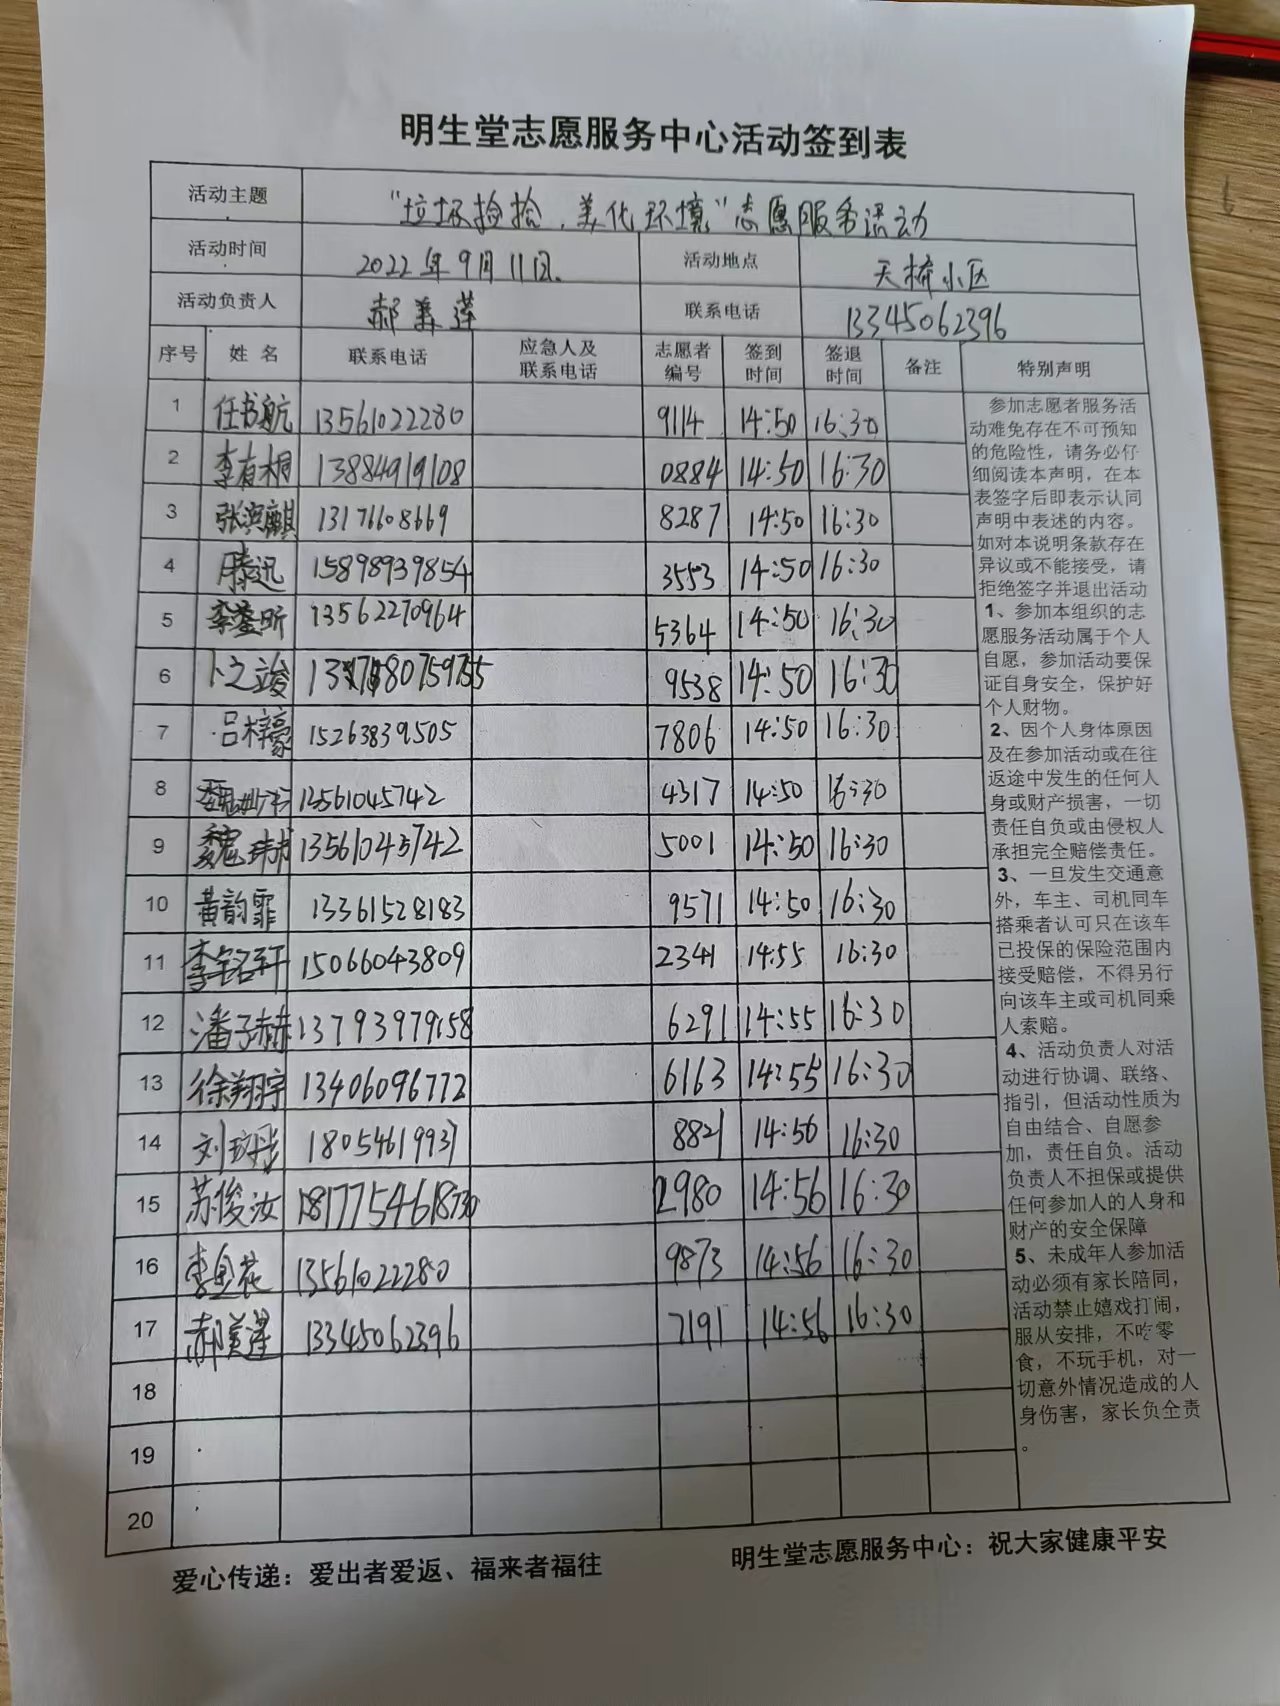 明生堂志愿服务中心活动签到表
活动主题 "垃圾捡拾,美化环境"志愿服务活动
活动时间 2022年9月11日. 活动地点 天桥小区
活动负责人 郝美莲 联系电话 13345062396
序号 姓名 联系电话 应急人及联系电话 志愿者编号 签到时间 签退时间 备注 特别声明
1 任书航 13561022280 9114 14:50 16:30
2 李有桐 13884919108 0884 14:50 16:30
3 张洪麒 13176608669 8287 14:50 16:30
4 滕迅 15898939854 3553 14:50 16:30
5 李鋆昕 13562270964 5364 14:50 16:30
6 卜之竣 9538 14:50 16:30
7 吕梓豪 15263839505 7806 14:50 16:30
8 魏 13561045742 4317 14:50 16:30
9 魏玮书 13561045742 5001 14:50 16:30
10 黄韵霏 13361528183 9571 14:50 16:30
11 李铭轩 15066043809 2341 14:55 16:30
12 潘子赫 13793979158 6291 14:55 16:30
13 徐翔宇 13406096772 6163 14:55 16:30
14 刘 18054619937 8821 14:56 16:30
15 苏俊汝 2980 14:56 16:30
16 李鱼花 13561022280 9873 14:56 16:30
17 郝美莲 13345062396 7191 14:56 16:30
18
19
20
参加志愿者服务活
动难免存在不可预知
的危险性,请务必仔
细阅读本声明,在本
表签字后即表示认同
声明中表述的内容。
如对本说明条款存在
异议或不能接受,请
拒绝签字并退出活动
1、参加本组织的志
愿服务活动属于个人
自愿,参加活动要保
证自身安全,保护好
个人财物。
2、因个人身体原因
及在参加活动或在往
返途中发生的任何人
身或财产损害,一切
责任自负或由侵权人
承担完全赔偿责任。
3、一旦发生交通意
外,车主、司机同车
搭乘者认可只在该车
已投保的保险范围内
接受赔偿,不得另行
向该车主或司机同乘
人索赔。
4、活动负责人对活
动进行协调、联络、
指引,但活动性质为
自由结合、自愿参
加,责任自负。活动
负责人不担保或提供
任何参加人的人身和
财产的安全保障
5、未成年人参加活
动必须有家长陪同,
活动禁止嬉戏打闹,
服从安排,不吃零
食,不玩手机,对一
切意外情况造成的人
身伤害,家长负全责
。
爱心传递:爱出者爱返、福来者福往 明生堂志愿服务中心:祝大家健康平安